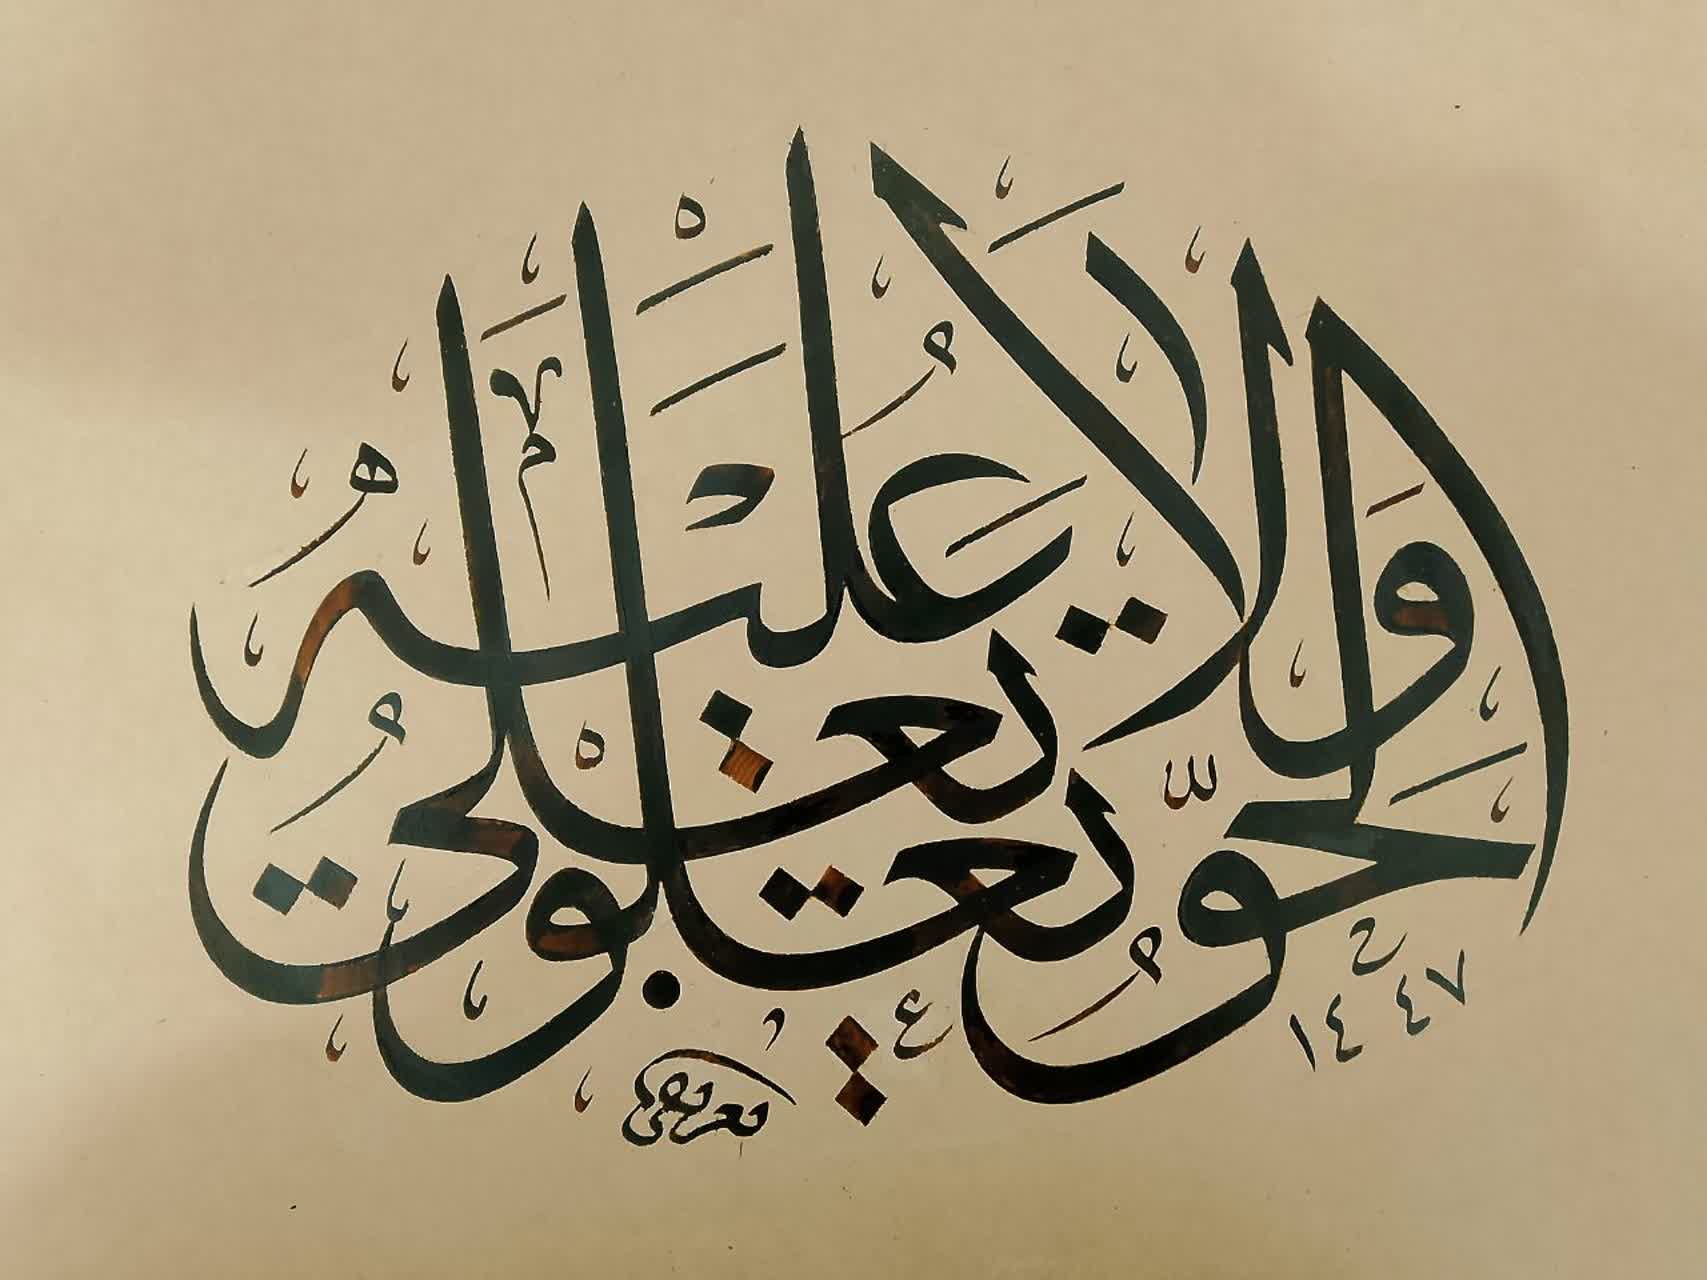 الحق يعلو ولا يعلى عليه
١٤٤٧